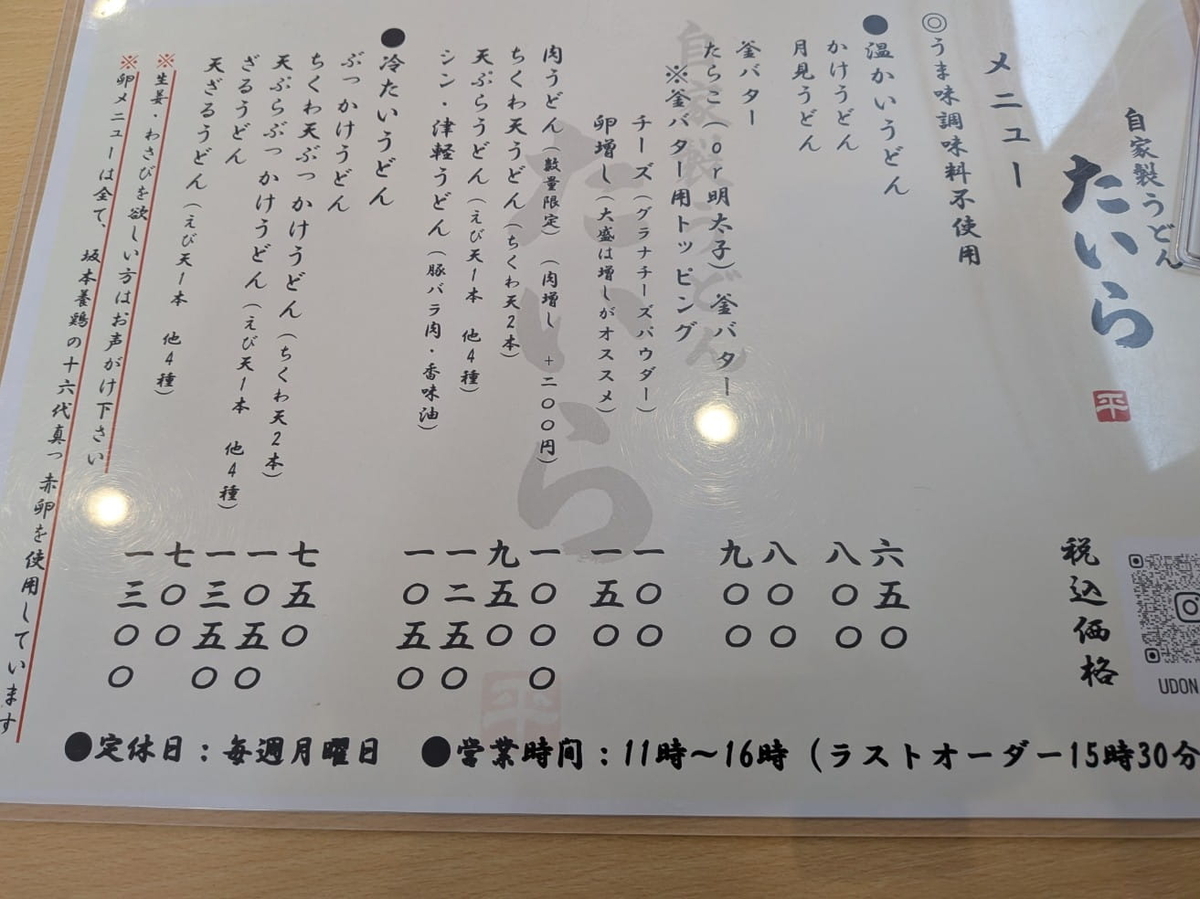 自家製うどん
たいら
平
税込価格
UDON
メニュー
◎うま味調味料不使用
●温かいうどん
かけうどん 六五〇
月見うどん 八〇〇
釜バター 八〇〇
たらこ(or明太子)釜バター 九〇〇
※釜バター用トッピング
チーズ(グラナチーズパウダー) 一〇〇
卵増し(大盛は増しがオススメ) 一五〇
肉うどん(数量限定)(肉増し +二〇〇円) 一〇〇〇
ちくわ天うどん(ちくわ天2本) 九五〇
天ぷらうどん(えび天1本 他4種) 一二五〇
シン・津軽うどん(豚バラ肉・香味油) 一〇五〇
●冷たいうどん
ぶっかけうどん 七五〇
ちくわ天ぶっかけうどん(ちくわ天2本) 一〇五〇
天ぷらぶっかけうどん(えび天1本 他4種) 一三五〇
ざるうどん 七〇〇
天ざるうどん(えび天1本 他4種) 一三〇〇
※生姜・わさびを欲しい方はお声がけ下さい
※卵メニューは全て、坂本養鶏の十六代真っ赤卵を使用しています
自家製うどん
たいら
平
●定休日:毎週月曜日 ●営業時間:11時〜16時(ラストオーダー15時30分